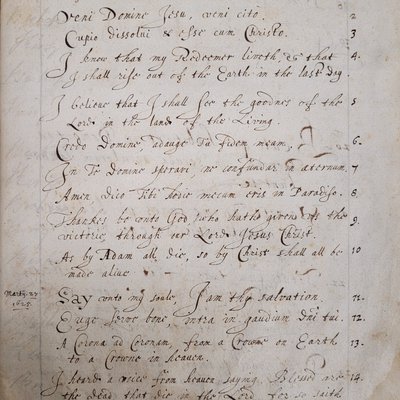 Veni Domine Jesu, veni cito. 2
Cupio dissolui & esse cum Christo. 3
I know that my Redeemer liveth, & that 4.
I shall rise out of the Earth in the last day.
I believe that I shall see the goodnes of the 5
Lord in the land of the Living.
Credo Domine, adauge Tu fidem meam, 6.
In Te Domine speravi, ne confundar in æternum. 7.
Amen dico tibi hodie mecum eris in Paradiso. 8.
Thankes be unto God who hath given us the 9.
victorie through our Lord Jesus Christ.
As by Adam all die, so by Christ shall all be 10
made alive
Martij 27
1625.
Say unto my soule, I am thy salvation 11.
Euge serve bone intra in gaudium Dni tui. 12.
A Corona ad Coronam, from a Crowne on Earth 13.
to a Crowne in heaven.
I heard a voice from heaven saying, Blessed are 14.
the dead that die in the Lord for so saith